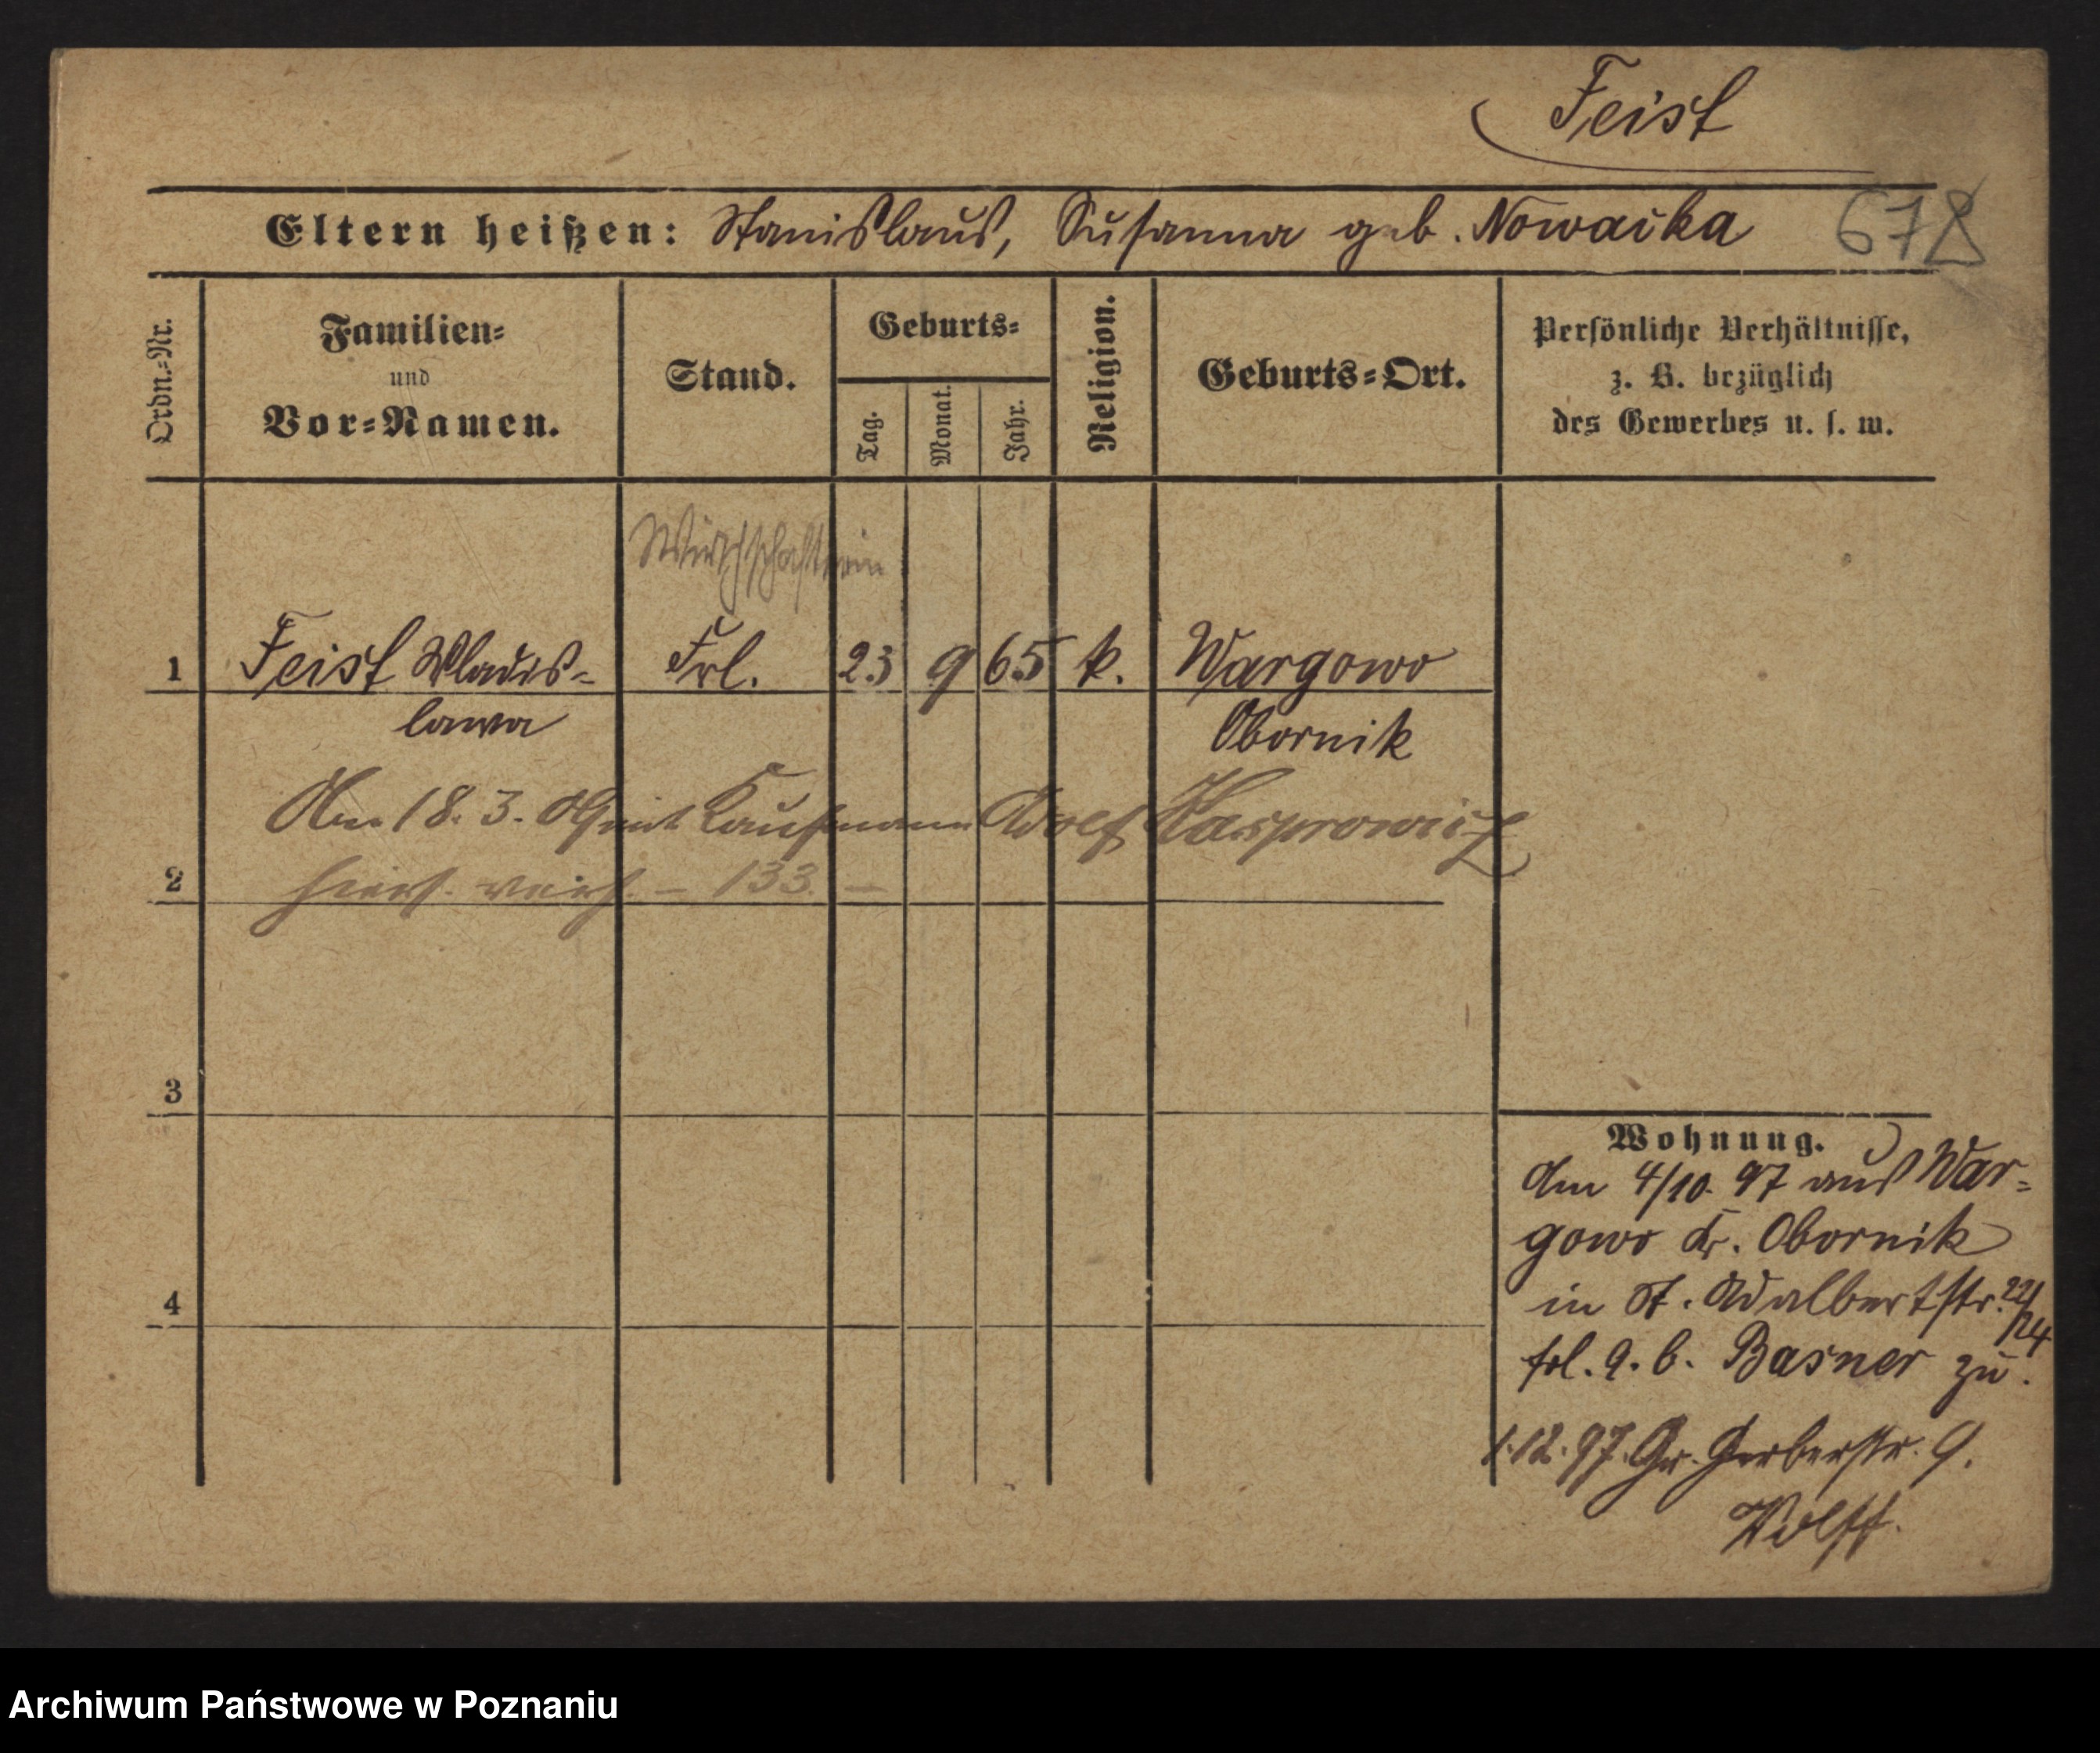 Feist
Eltern heißen: Stanislaus, Susanna geb. Nowacka 678
Ordn.-Nr.
Familien-
und
Vor-Namen.
Stand.
Geburts-
Tag.
Monat.
Jahr.
Religion.
Geburts-Ort.
Persönliche Verhältnisse,
z. B. bezüglich
des Gewerbes u. s. w.
Wirthschafterin
1 Feist Wladis- Frl. 23 9 65 k. Wargowo
lawa Obornik
Am 18. 3. mit Kaufmann Adolf Kasprowicz
2 hiers. verh. – 133. –
3
4
Wohnung.
Am 4/10. 97 aus War-
gowo Kr. Obornik
in St. Adalbertstr. 22/
/24
b. Basner zu.
1.12.97. Gr. Gerberstr. 9.
Wolff.
Archiwum Państwowe w Poznaniu